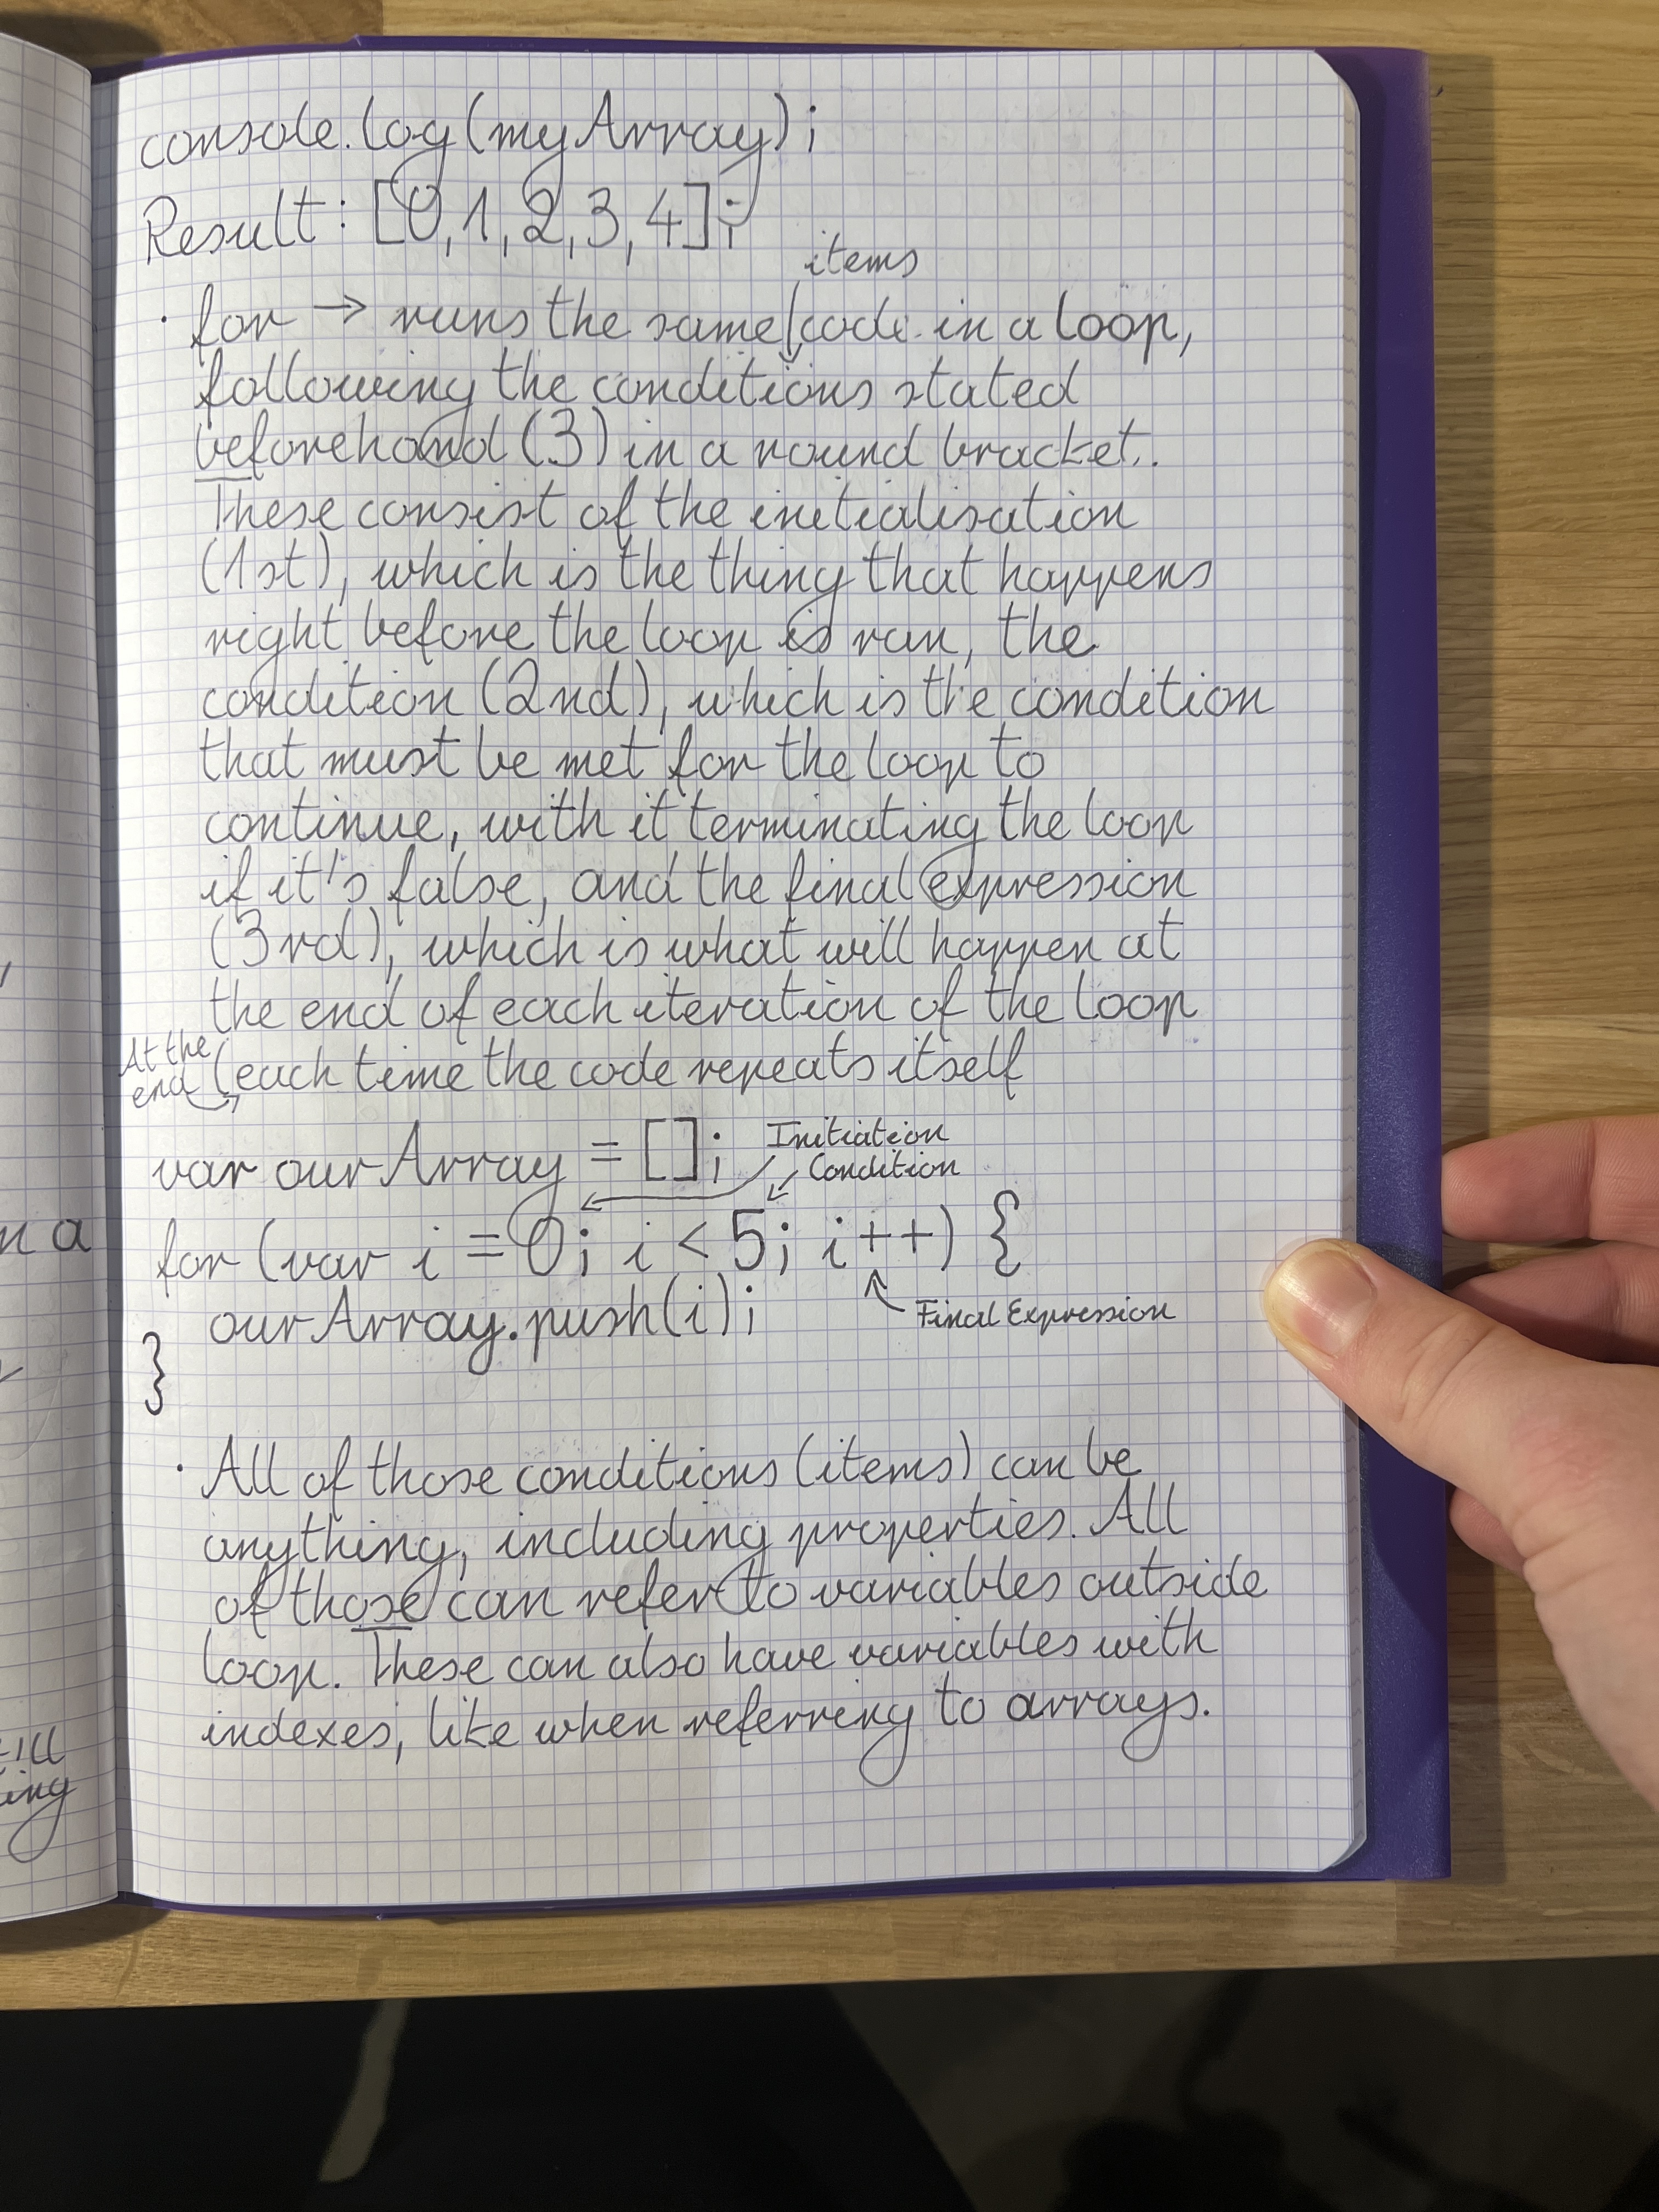 console.log(myArray);
Result: [0,1,2,3,4];
items
· for → runs the same code in a loop,
following the conditions stated
beforehand (3) in a round bracket.
These consist of the initialisation
(1st), which is the thing that happens
right before the loop is run, the
condition (2nd), which is the condition
that must be met for the loop to
continue, with it terminating the loop
if it's false, and the final expression
(3rd), which is what will happen at
the end of each iteration of the loop
At the
end
(each time the code repeats itself
var ourArray = [];
Initiation
Condition
for (var i = 0; i < 5; i++) {
Final Expression
ourArray.push(i);
}
· All of those conditions (items) can be
anything, including properties. All
of those can refer to variables outside
loop. These can also have variables with
indexes, like when referring to arrays.
n a
ing